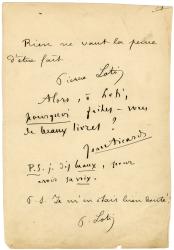 Rien ne vaut la peine
d'être fait
Pierre Loti
Alors, ô Loti,
pourquoi faites-vous
de beaux livres ?
Jean Aicard
P.S. je dis beaux, pour
avoir sa voix.
P.S. Je m'en étais bien douté!
P. Loti